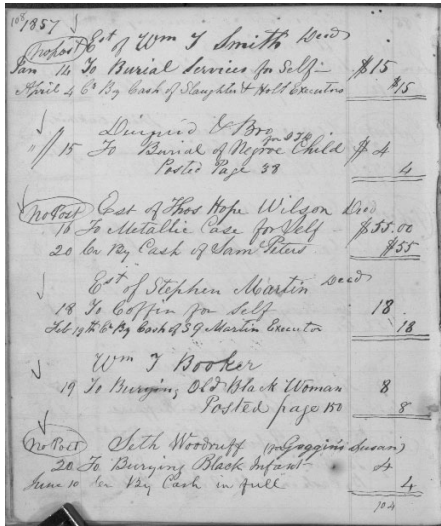 108
1857
No post Est of Wm T Smith Decd
Jan 14 To Burial Services for Self - $15
April 4 Cr By Cash of Slaughter & Holt Executors $15
Diuguid & Bro
" 15 To Burial of Negroe Child $4
Posted Page 38 4
No Post Est of Thos Hope Wilson Decd
16 To Metallic Case for Self - $55.00
20 Cr By Cash of Sam Peters $55
Est of Stephen Martin Decd
18 To Coffin for Self 18
Feb 19th Cr By Cash of S G Martin Executor 18
Wm T Booker
19 To Burying Old Black Woman 8
Posted page 150 8
No Post Seth Woodruff Goggin Susan)
20 To Burying Black Infant 4
June 10 Cr By Cash in full 4
104